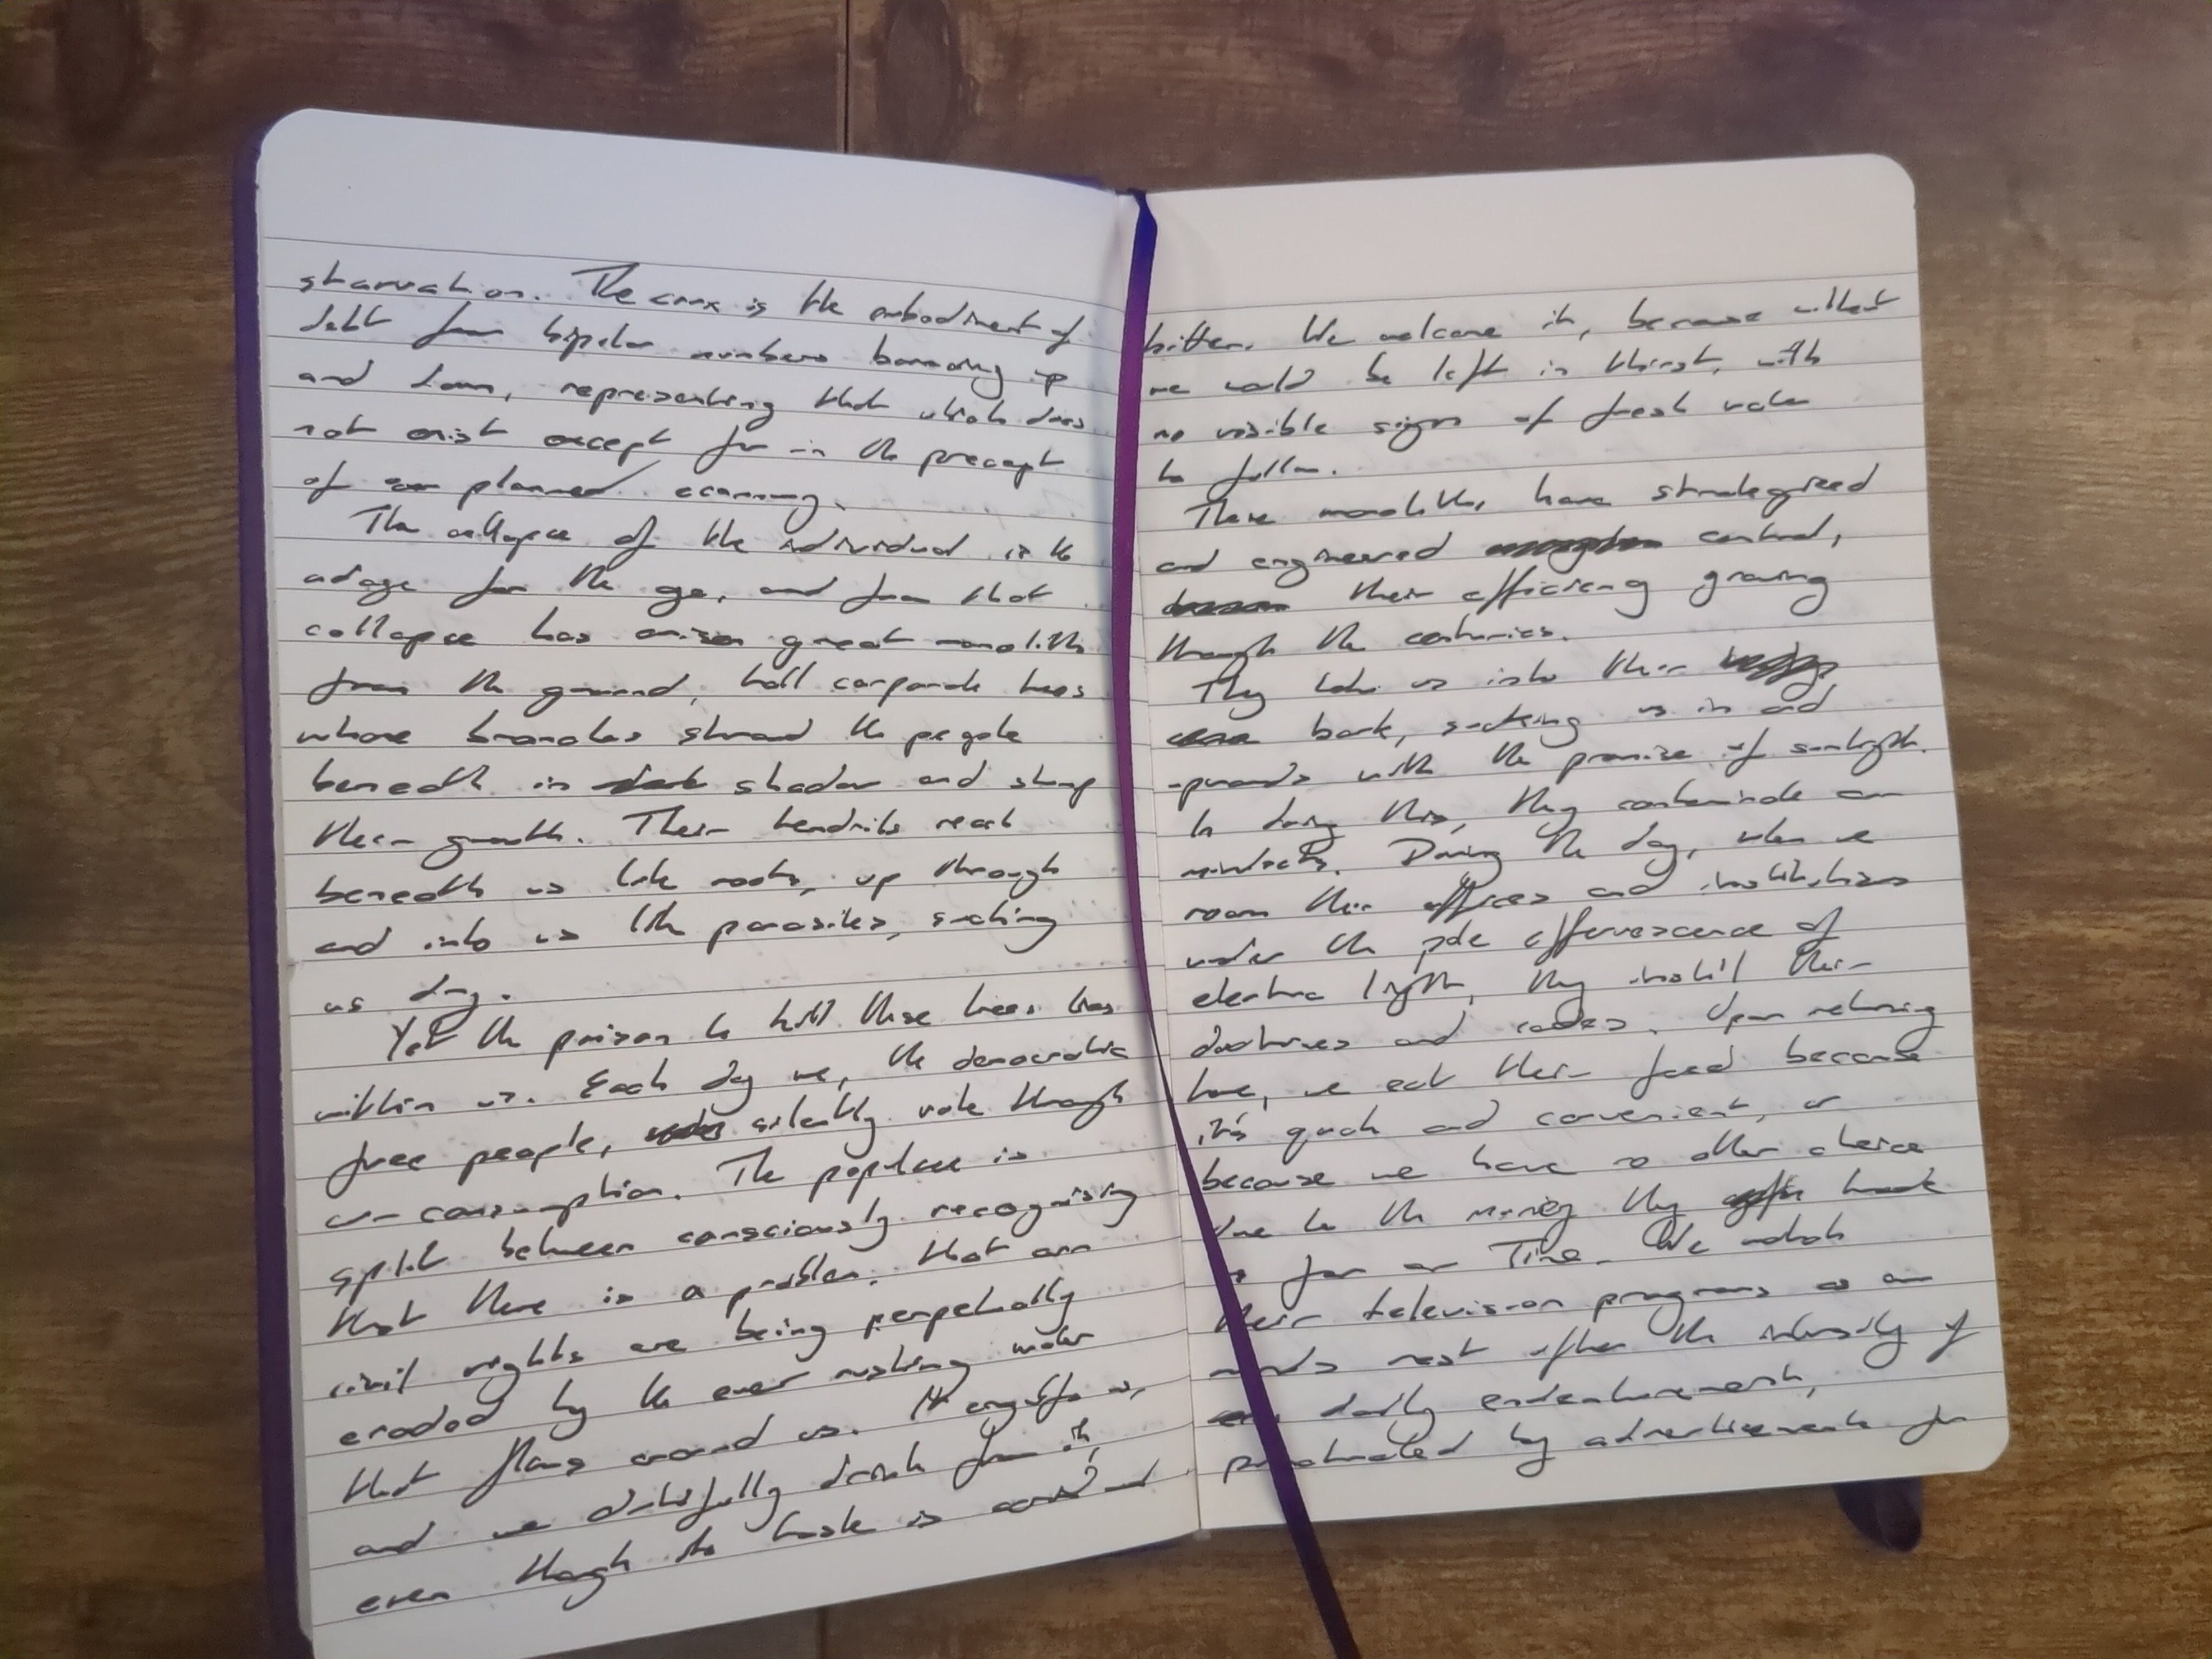 starvation. The crux is the embodiment of
debt from bipolar numbers bouncing up
and down, representing that which does
not exist except for in the precept
of our planned economy.
The collapse of the individual is the
adage for the age, and from that
collapse has arisen great monoliths
from the ground, tall corporate trees
whose branches shroud the people
beneath in shadow and stump
their growth. Their tendrils reach
beneath us like roots, up through
and into us like parasites, sucking
us dry.
Yet the poison to kill these trees lies
within us. Each day we, the democratic
free people, silently vote through
our consumption. The populace is
split between consciously recognising
that there is a problem, that our
civil rights are being perpetually
eroded by the ever rushing water
that flows around us. It engulfs us,
and we dutifully drink from it,
even though its taste is acrid and
bitter. We welcome it, because without
we would be left in thirst, with
no visible signs of fresh water
to follow.
These monoliths, have strategized
and engineered control,
their efficiency growing
through the centuries.
They take us into their
bark, sucking us in and
upwards with the promise of sunlight.
In doing this, they contaminate our
mindsets. During the day, when we
roam their offices and institutions
under the pale effervescence of
electric light, they instill their
doctrines and codes. Upon returning
home, we eat their food because
it's quick and convenient, or
because we have no other choice
due to the money they
us for our Time. We watch
their television programs as our
minds rest after the intensity of
daily endenturement,
penetrated by advertisements for